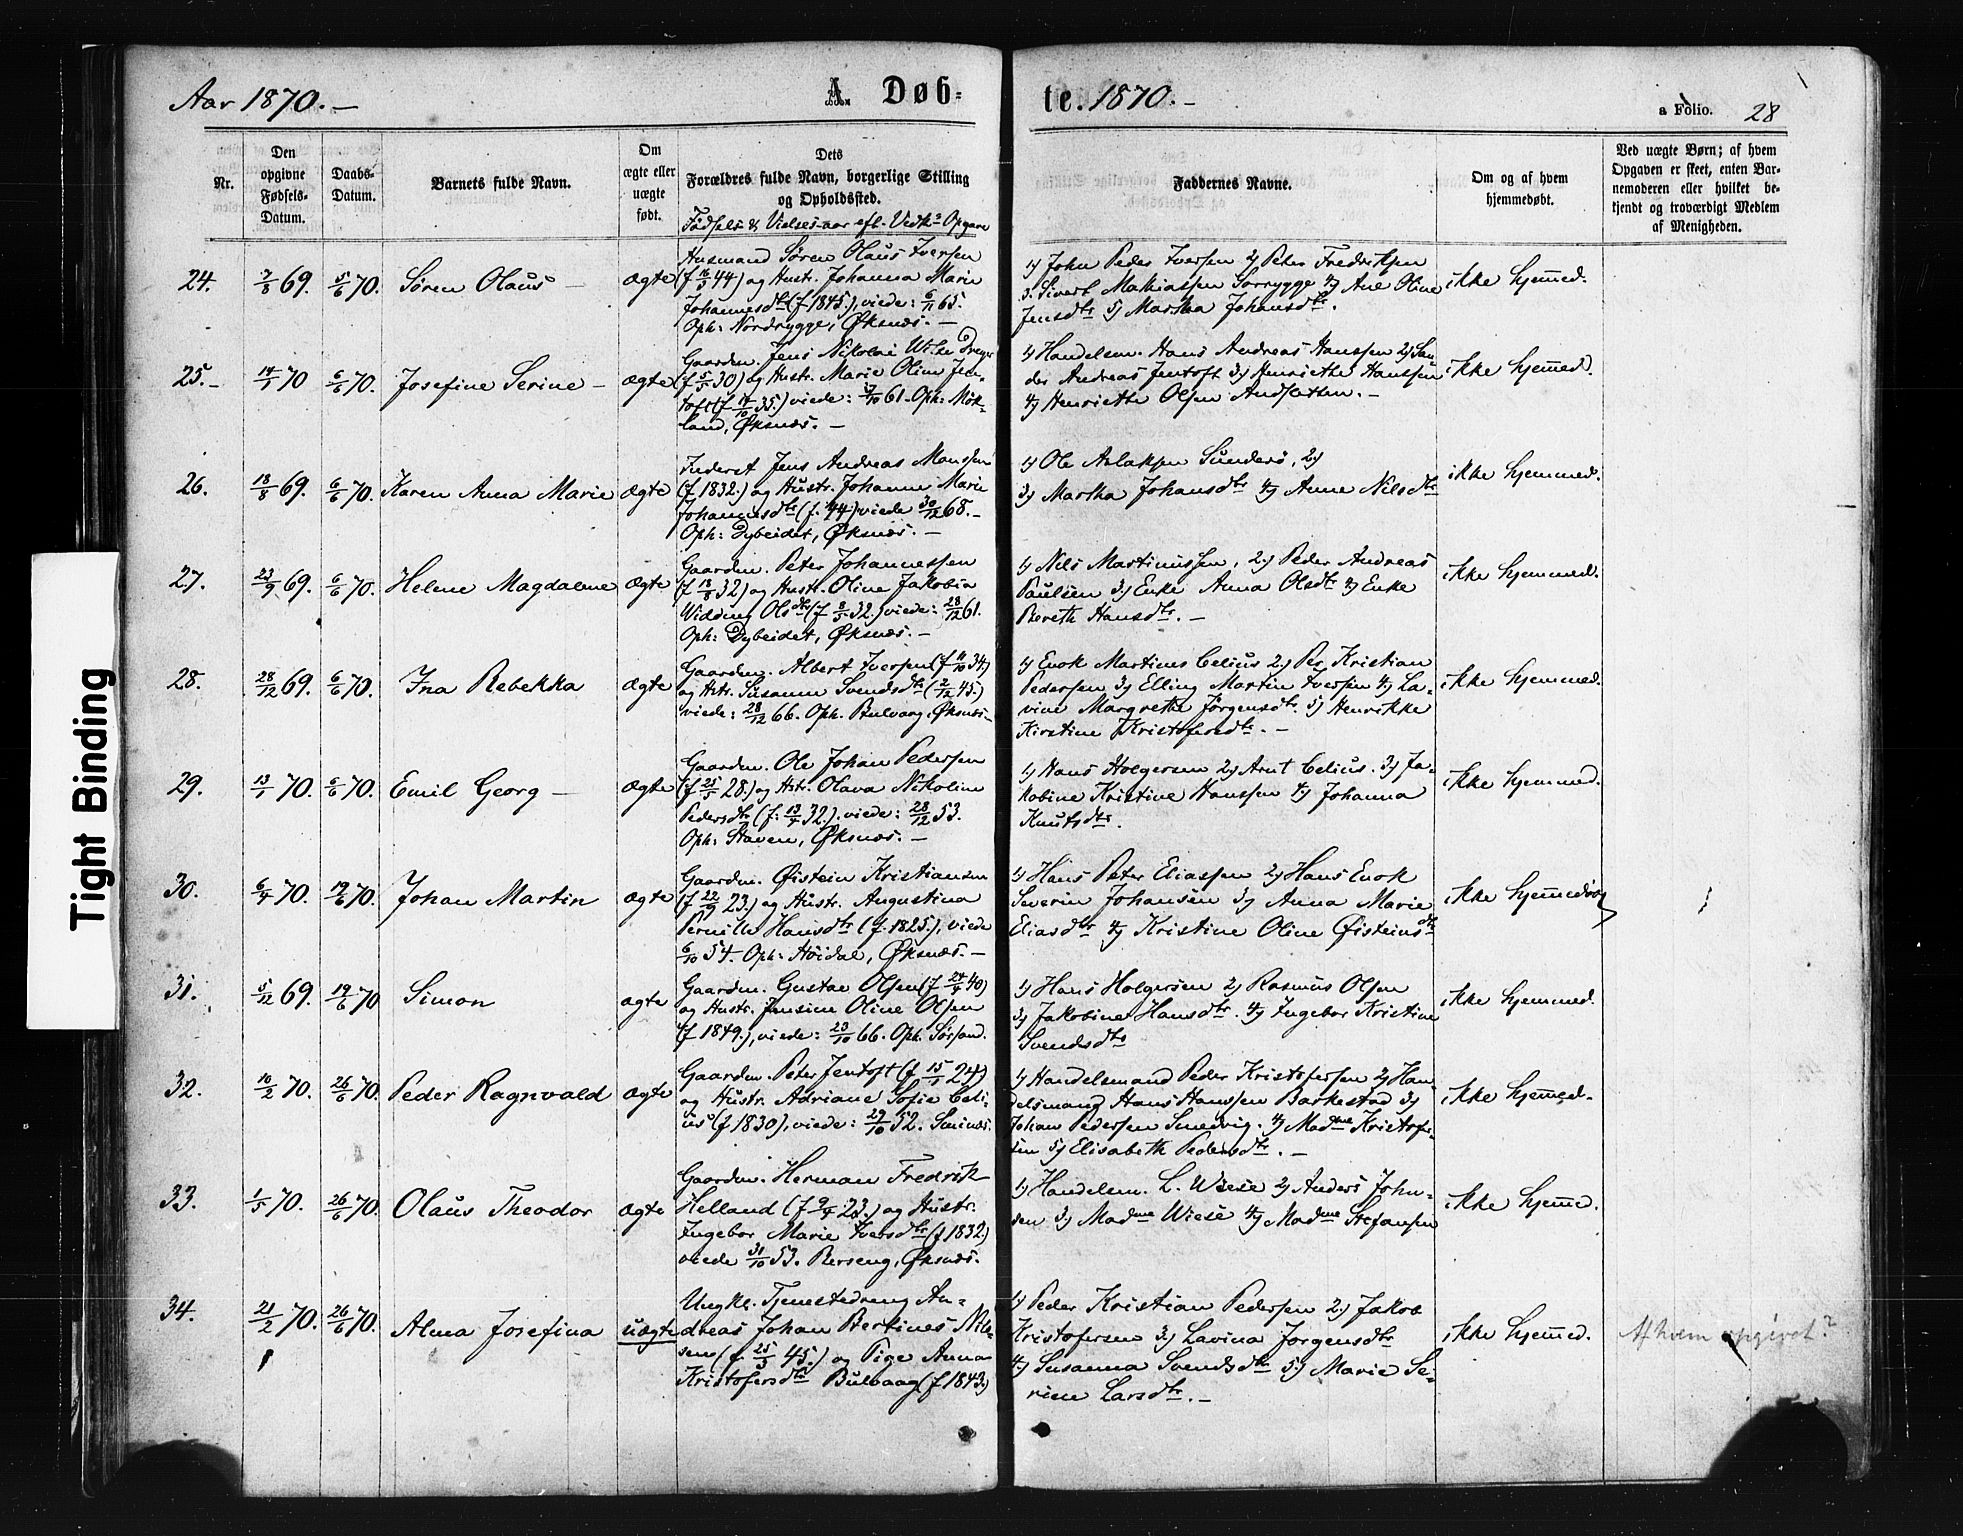 Aar 1870. —
A Døb=
te. 1870. -
a Folio. 28
Nr.
Den
opgivne
Fødsels-
Datum.
Daabs-
Datum.
Barnets fulde Navn.
Om
ægte eller
uægte
født.
Dets
Forældres fulde Navn, borgerlige Stilling
og Opholdssted.
Fødsels & Vielsesaar eft. Vedk. Opgave
Faddernes Navne.
Om og af hvem
hjemmedøbt.
Ved uægte Børn; af hvem
Opgaven er skeet, enten Bar-
nemoderen eller hvilket be-
kjendt og troværdigt Medlem
af Menigheden.
24. 7/8 69. 5/6 70. Søren Olaus — ægte
Husmand Søren Olaus Iversen
(f 16/5 44) og Hustr. Johanna Marie
Johannesdtr (f 1845), viede: 6/11 65.
Oph: Nordrygge, Øksnæs. —
1) John Peder Iversen 2) Peter Fredriksen
3. Sivert Mathiassen Sorrygge 4) Ane Oline
Jensdtr 5) Martha Johansdtr.
ikke hjemmed.
25. - 14/1 70 6/6 70. Josefine Serine — ægte
Gaardm. Jens Nikolai Dreyer
(f 5/5 30) og Hustr. Marie Oline Jen-
toft (f 14/10 35.) viede: 7/10 61. Oph: Mök-
land, Øksnæs. —
1) Handelsm. Hans Andreas Hanssen 2) San-
der Andreas Jentoft 3) Henriethe Hanssen
4) Henriethe Olsen Andslatten. -
ikke hjemmed.
26. 18/8 69. 6/6 70. Karen Anna Marie ægte
Inderst Jens Andreas Monssen
(f 1832.) og Hustr. Johanne Marie
Johannesdtr (f. 44) viede 30/12 68. -
Oph: Dybeidet, Øksnæs. —
1) Ole Aslaksen Sunderö, 2)
3) Martha Johansdtr 4) Anne Nilsdtr
ikke hjemmed.
27. 23/9 69. 6/6 70. Helene Magdalene ægte
Gaardm. Peter Johannessen
(f 18/8 32) og Hustr. Oline Jakobia
Widding Olsdtr (f 8/5 32.) viede: 28/12 61.
Oph: Dybeidet, Øksnæs. —
1) Nils Martinussen, 2) Peder Andreas
Paulsen 3) Enke Anna Olsdtr 4) Enke
Bereth Hansdtr. —
ikke hjemmed.
28. 28/12 69. 6/6 70. Ina Rebekka ægte
Gaardm. Albert Iversen (f 11/10 34)
og Hstr. Susanne Svendsdtr (2/12 45.)
viede: 28/12 66. Oph. Bulvaag, Øksnæs -
1) Enok Martines Celius 2) Per Kristian
Pedersen 3) Elling Martin Iversen 4) La-
vine Margrethe Jörgensdtr. 5) Henrikke
Kirstine Kristofersdtr. —
ikke hjemmed.
29. 13/1 70. 6/6 70. Emil Georg — ægte
Gaardm. Ole Johan Pedersen
(f 25/5 28.) og Hstr. Olava Nikoline
Pedersdtr (f. 13/4 32.) viede: 28/12 53.
Oph: Staven, Øksnæs. —
1) Hans Holgersen 2) Arnt Celius. 3) Ja-
kobine Kristine Hanssen 4) Johanna
Knutsdtr.
ikke hjemmed.
30. 6/4 70. 19/6 70. Johan Martin ægte
Gaardm. Øistein Kristiansen
(f 22/9 23.) og Hustr. Augustina
Pernille Hansdtr (f. 1825.), viede
6/10 54. Oph: Höidal, Øksnæs. —
1) Hans Peter Eliassen 2) Hans Enok
Severin Johansen 3) Anna Marie
Eliasdtr 4) Kristine Oline Øisteinsdtr
ikke hjemmed
31. 5/12 69. 19/6 70 Simon ægte
Gaardm. Gustav Olsen (f 24/4 40)
og Hustr. Jensine Oline Olsen
(f 1849.), viede: 23/10 66. Oph. Sörsand.
1) Hans Holgersen 2) Rasmus Olsen
3) Jakobine Hansdtr. 4) Ingebor Kristine
Svendsdtr
ikke hjemmed.
32. 10/2 70. 26/6 70. Peder Ragnvald ægte
Gaardm. Peter Jentoft (f 15/1 24)
og Hustr. Adriane Sofie Celi-
us (f 1830), viede: 29/10 52. Sminæs.
1) Handelsmand Peder Kristofersen 2) Han-
delsmand Hans Hanssen Barkestad 3)
Johan Pedersen Smedvig. 4) Madme Kristofer-
sen 5) Elisabeth Pedersdtr. —
ikke hjemmed.
33. 1/5 70. 26/6 70. Olaus Theodor ægte
Gaardm. Herman Fredrik
Helland (f 9/4 23.) og Hustr.
Ingebor Marie Iversdtr (f 1832.)
viede 31/10 53. Berseng, Øksnæs.
1) Handelsm. L. Wiese 2) Anders John-
sen 3) Madme Wiese 4) Madme Stefansen
ikke hjemmed.
34. 21/2 70. 26/6 70. Alma Josefina uægte
Ungkl. Tjenestedreng An-
dreas Johan Bertines Nil-
sen (f. 25/5 45.) og Pige Anna
Kristofersdtr Bulvaag (f 1843.)
1) Peder Kristian Pedersen 2) Jakob
Kristofersen 3) Lavina Jörgensdtr
4) Susanna Svendsdtr 5) Marie Se-
rine Larsdtr. —
ikke hjemmed.
Af hvem opgivet?
Tight Binding